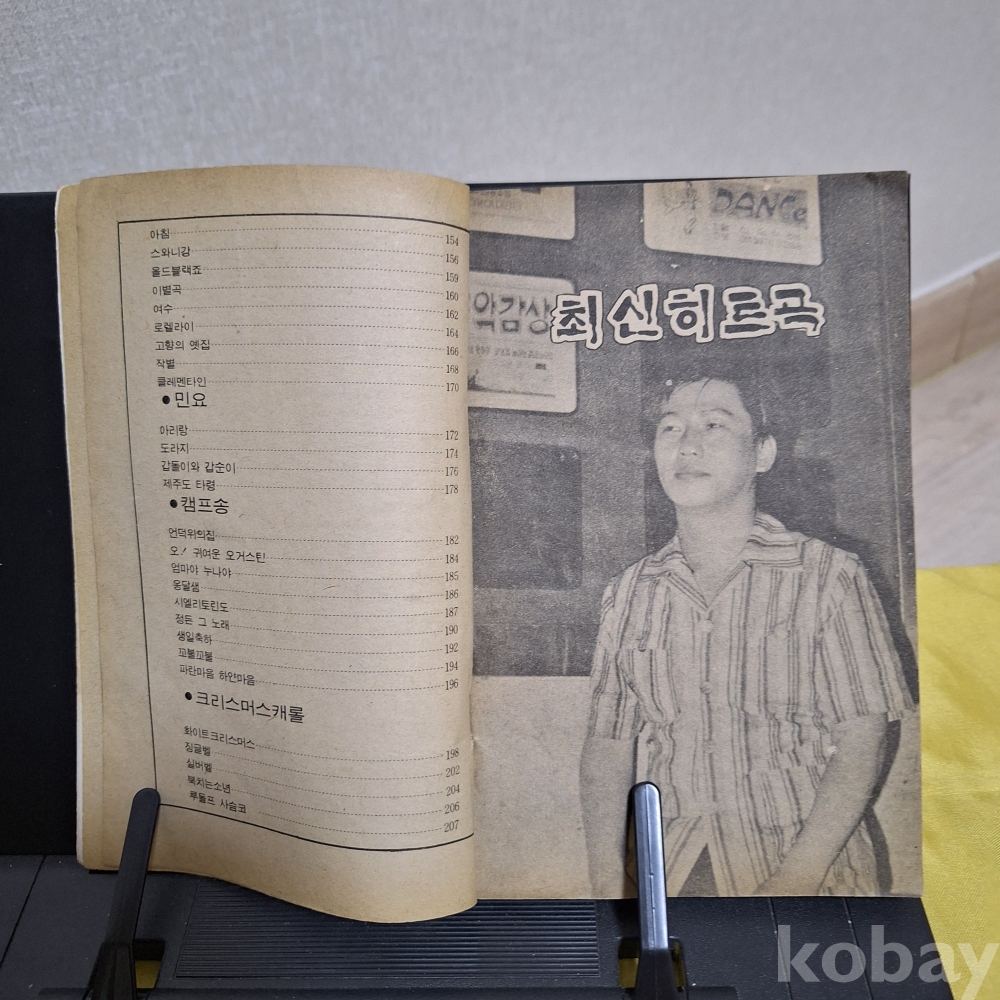 아침 154
스와니강 156
올드블랙죠 159
이별곡 160
여수 162
로렐라이 164
고향의 옛집 166
작별 168
클레멘타인 170
●민요
아리랑 172
도라지 174
갑돌이와 갑순이 176
제주도 타령 178
●캠프송
언덕위의집 182
오! 귀여운 오거스틴 184
엄마야 누나야 185
옹달샘 186
시엘리토린도 187
정든 그 노래 190
생일축하 192
꼬불꼬불 194
파란마음 하얀마음 196
●크리스머스캐롤
화이트크리스머스 198
징글벨 202
실버벨 204
북치는소년 206
루돌프 사슴코 207
DANCe
악감상
최신히트곡
kobay